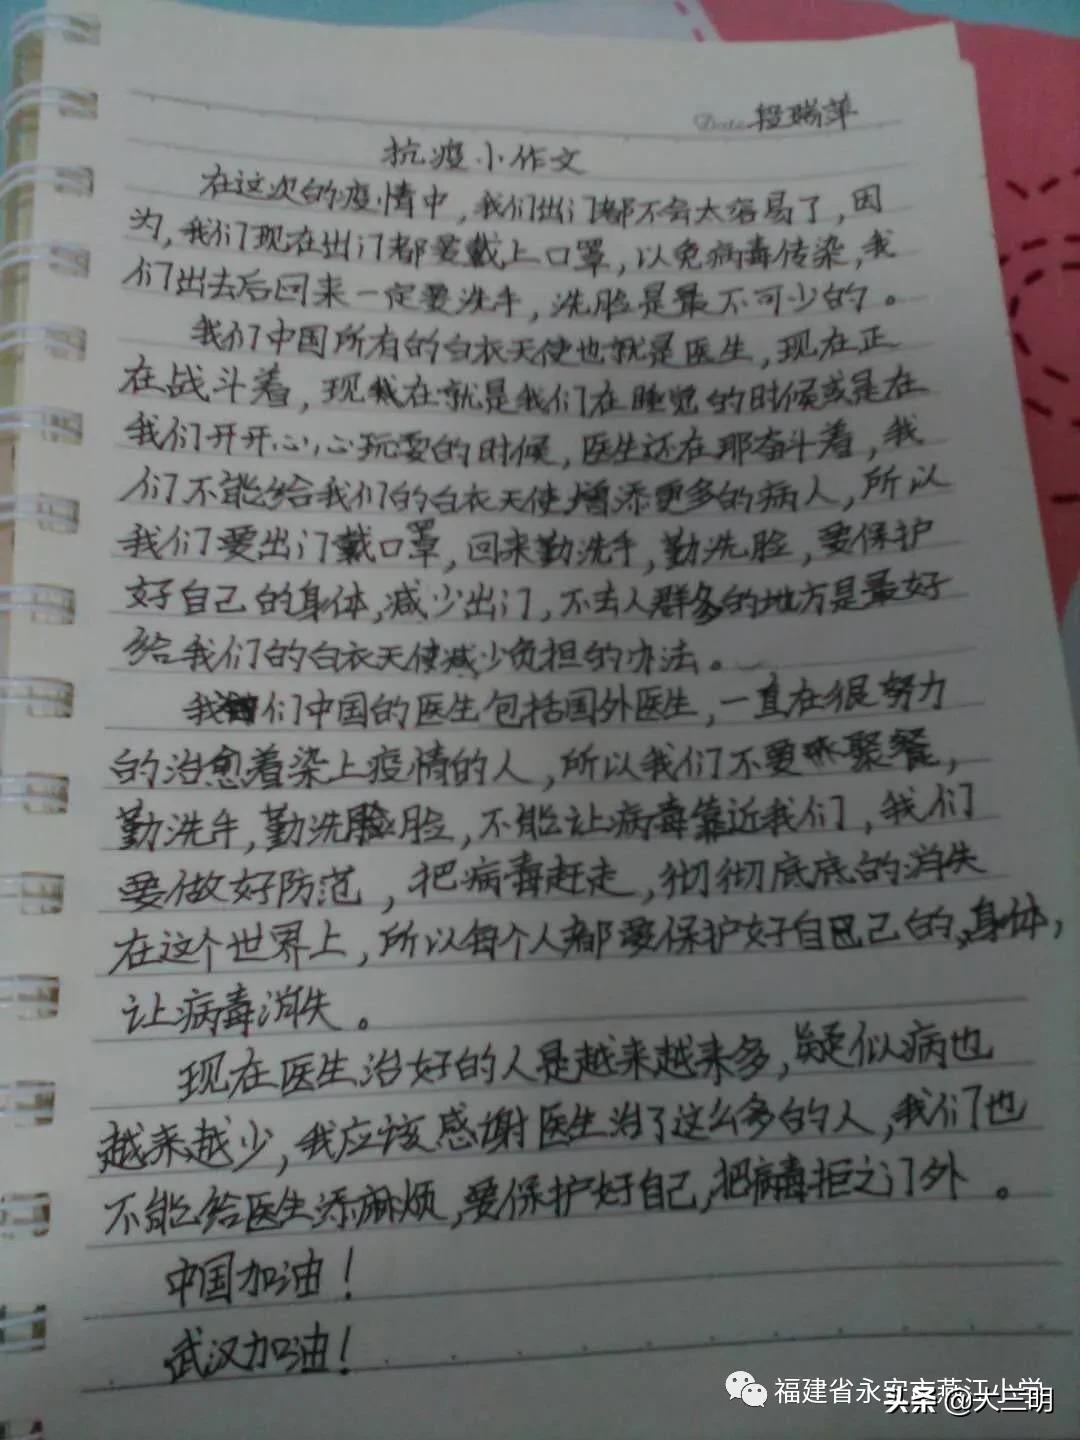 Date 段瑞萍
抗疫小作文
在这次的疫情中，我们出门都不会太容易了，因
为，我们现在出门都要戴上口罩，以免病毒传染，我
们出去后回来一定要洗手，洗脸是最不可少的。
我们中国所有的白衣天使也就是医生，现在正
在战斗着，现我在就是我们在睡觉的时候或是在
我们开开心心玩耍的时候，医生还在那奋斗着，我
们不能给我们的白衣天使增添更多的病人，所以
我们要出门戴口罩，回来勤洗手，勤洗脸，要保护
好自己的身体，减少出门，不去人群多的地方是最好
给我们的白衣天使减少负担的办法。
我们中国的医生包括国外医生，一直在很努力
的治愈着染上疫情的人，所以我们不要聚餐，
勤洗手，勤洗脸，不能让病毒靠近我们，我们
要做好防范，把病毒赶走，彻彻底底的消失
在这个世界上，所以每个人都要保护好自己的身体，
让病毒消失。
现在医生治好的人是越来越来多，疑似病也
越来越少，我应该感谢医生治了这么多的人，我们也
不能给医生添麻烦，要保护好自己，把病毒拒之门外。
中国加油！
武汉加油！
福建省永安市燕江小学
头条@大三明